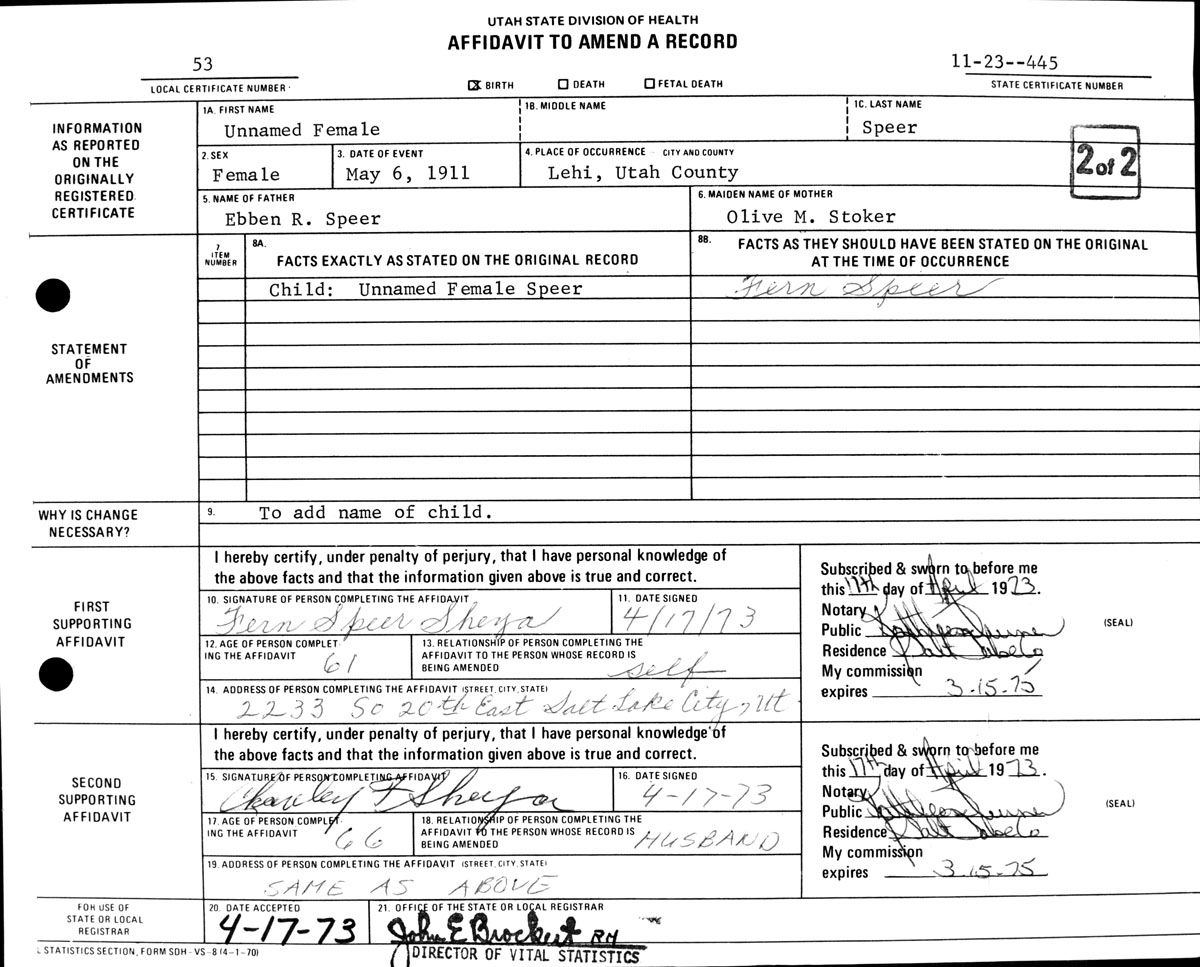 UTAH STATE DIVISION OF HEALTH
AFFIDAVIT TO AMEND A RECORD
53
LOCAL CERTIFICATE NUMBER
☒ BIRTH ☐ DEATH ☐ FETAL DEATH
11-23--445
STATE CERTIFICATE NUMBER
INFORMATION
AS REPORTED
ON THE
ORIGINALLY
REGISTERED
CERTIFICATE
1A. FIRST NAME
Unnamed Female
1B. MIDDLE NAME
1C. LAST NAME
Speer
2. SEX
Female
3. DATE OF EVENT
May 6, 1911
4. PLACE OF OCCURRENCE - CITY AND COUNTY
Lehi, Utah County
2 of 2
5. NAME OF FATHER
Ebben R. Speer
6. MAIDEN NAME OF MOTHER
Olive M. Stoker
STATEMENT
OF
AMENDMENTS
7
ITEM
NUMBER
8A.
FACTS EXACTLY AS STATED ON THE ORIGINAL RECORD
8B. FACTS AS THEY SHOULD HAVE BEEN STATED ON THE ORIGINAL
AT THE TIME OF OCCURRENCE
Child: Unnamed Female Speer
Fern Speer
WHY IS CHANGE
NECESSARY?
9. To add name of child.
FIRST
SUPPORTING
AFFIDAVIT
I hereby certify, under penalty of perjury, that I have personal knowledge of
the above facts and that the information given above is true and correct.
10. SIGNATURE OF PERSON COMPLETING THE AFFIDAVIT
Fern Speer Sheya
11. DATE SIGNED
4/17/73
12. AGE OF PERSON COMPLET-
ING THE AFFIDAVIT 61
13. RELATIONSHIP OF PERSON COMPLETING THE
AFFIDAVIT TO THE PERSON WHOSE RECORD IS
BEING AMENDED self
14. ADDRESS OF PERSON COMPLETING THE AFFIDAVIT (STREET, CITY, STATE)
2233 So 20th East Salt Lake City, Ut
Subscribed & sworn to before me
this 17th day of April 1973.
Notary
Public
Residence
My commission
expires 3-15-75
(SEAL)
SECOND
SUPPORTING
AFFIDAVIT
I hereby certify, under penalty of perjury, that I have personal knowledge of
the above facts and that the information given above is true and correct.
15. SIGNATURE OF PERSON COMPLETING AFFIDAVIT
Charley F Sheya
16. DATE SIGNED
4-17-73
17. AGE OF PERSON COMPLET-
ING THE AFFIDAVIT 66
18. RELATIONSHIP OF PERSON COMPLETING THE
AFFIDAVIT TO THE PERSON WHOSE RECORD IS
BEING AMENDED HUSBAND
19. ADDRESS OF PERSON COMPLETING THE AFFIDAVIT (STREET, CITY, STATE)
SAME AS ABOVE
Subscribed & sworn to before me
this 17th day of April 1973.
Notary
Public
Residence
My commission
expires 3-15-75
(SEAL)
FOR USE OF
STATE OR LOCAL
REGISTRAR
20. DATE ACCEPTED
4-17-73
21. OFFICE OF THE STATE OR LOCAL REGISTRAR
John E Brockert RH
DIRECTOR OF VITAL STATISTICS
STATISTICS SECTION, FORM SDH-VS-8 (4-1-70)